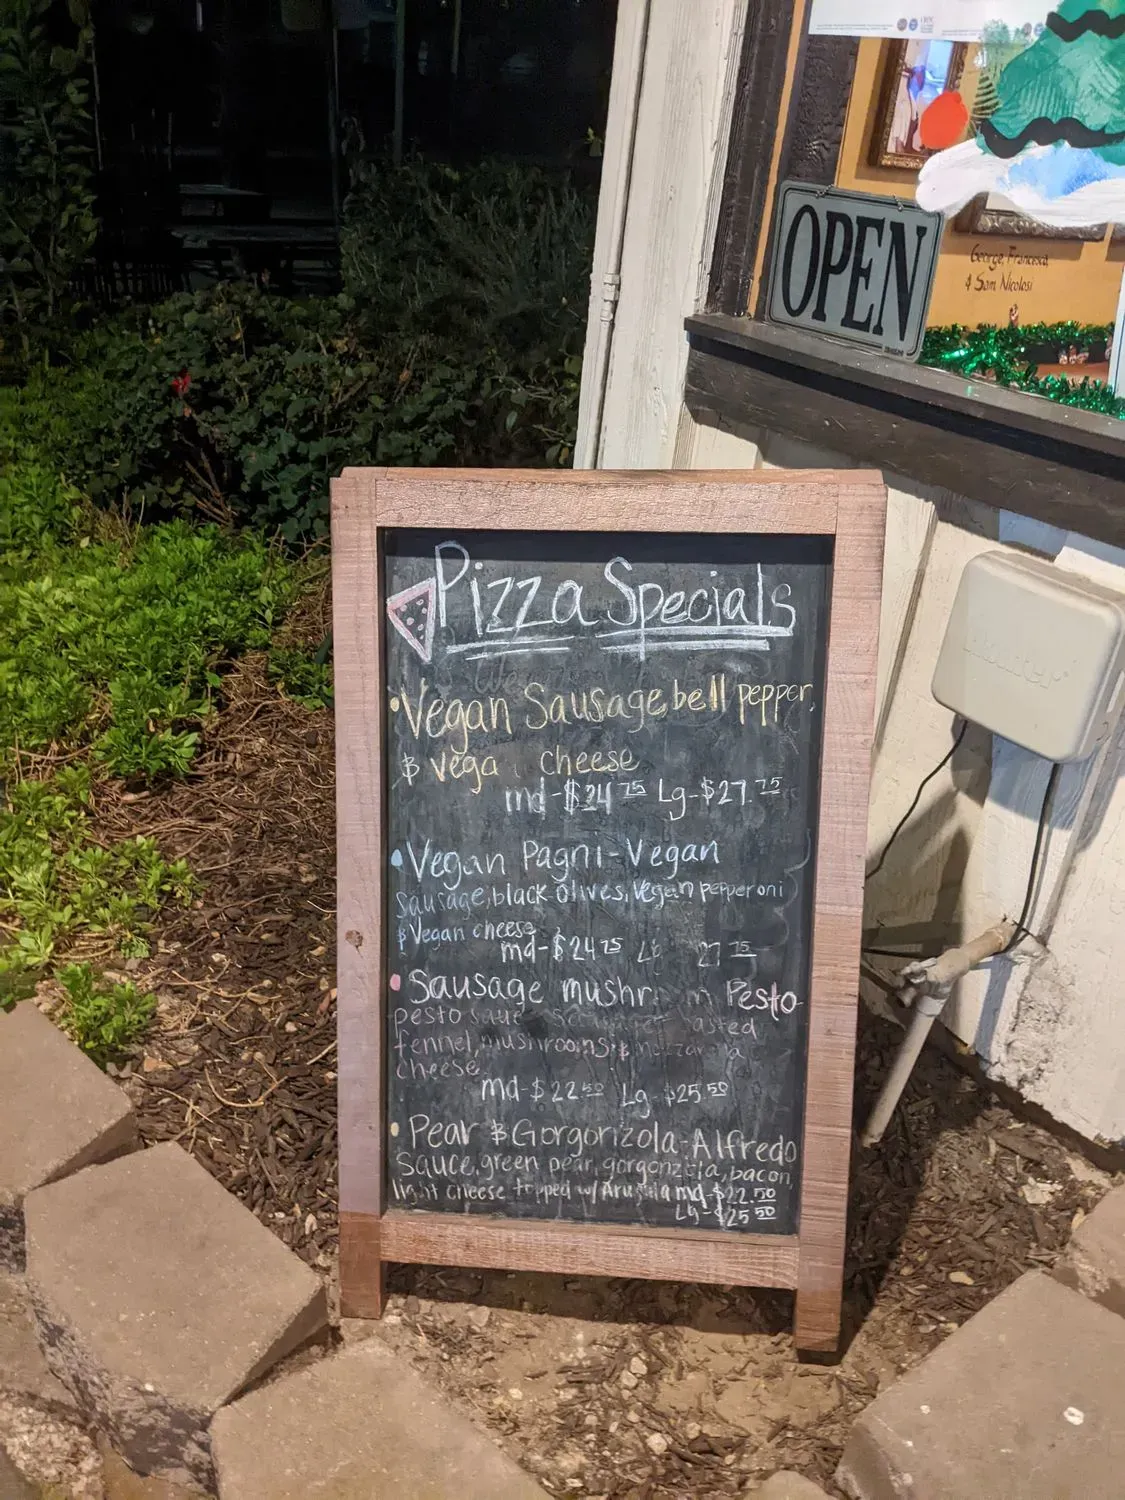 OPEN
George, Francesca,
& Sam Nicolosi
Pizza Specials
• Vegan Sausage bell pepper,
& vega cheese
md-$24 75 Lg-$27.75
• Vegan Pagni-Vegan
sausage, black olives, Vegan pepperoni
& Vegan cheese
md-$24 75 27 75
• Sausage mushr m Pesto-
pesto
fennel, mushrooms &
cheese
md-$22 50 Lg-$25 50
• Pear & Gorgonizola-Alfredo
Sauce, green pear, gorgonzola, bacon,
light cheese topped w/ Arugula md-$22.50
Lg-$25 50